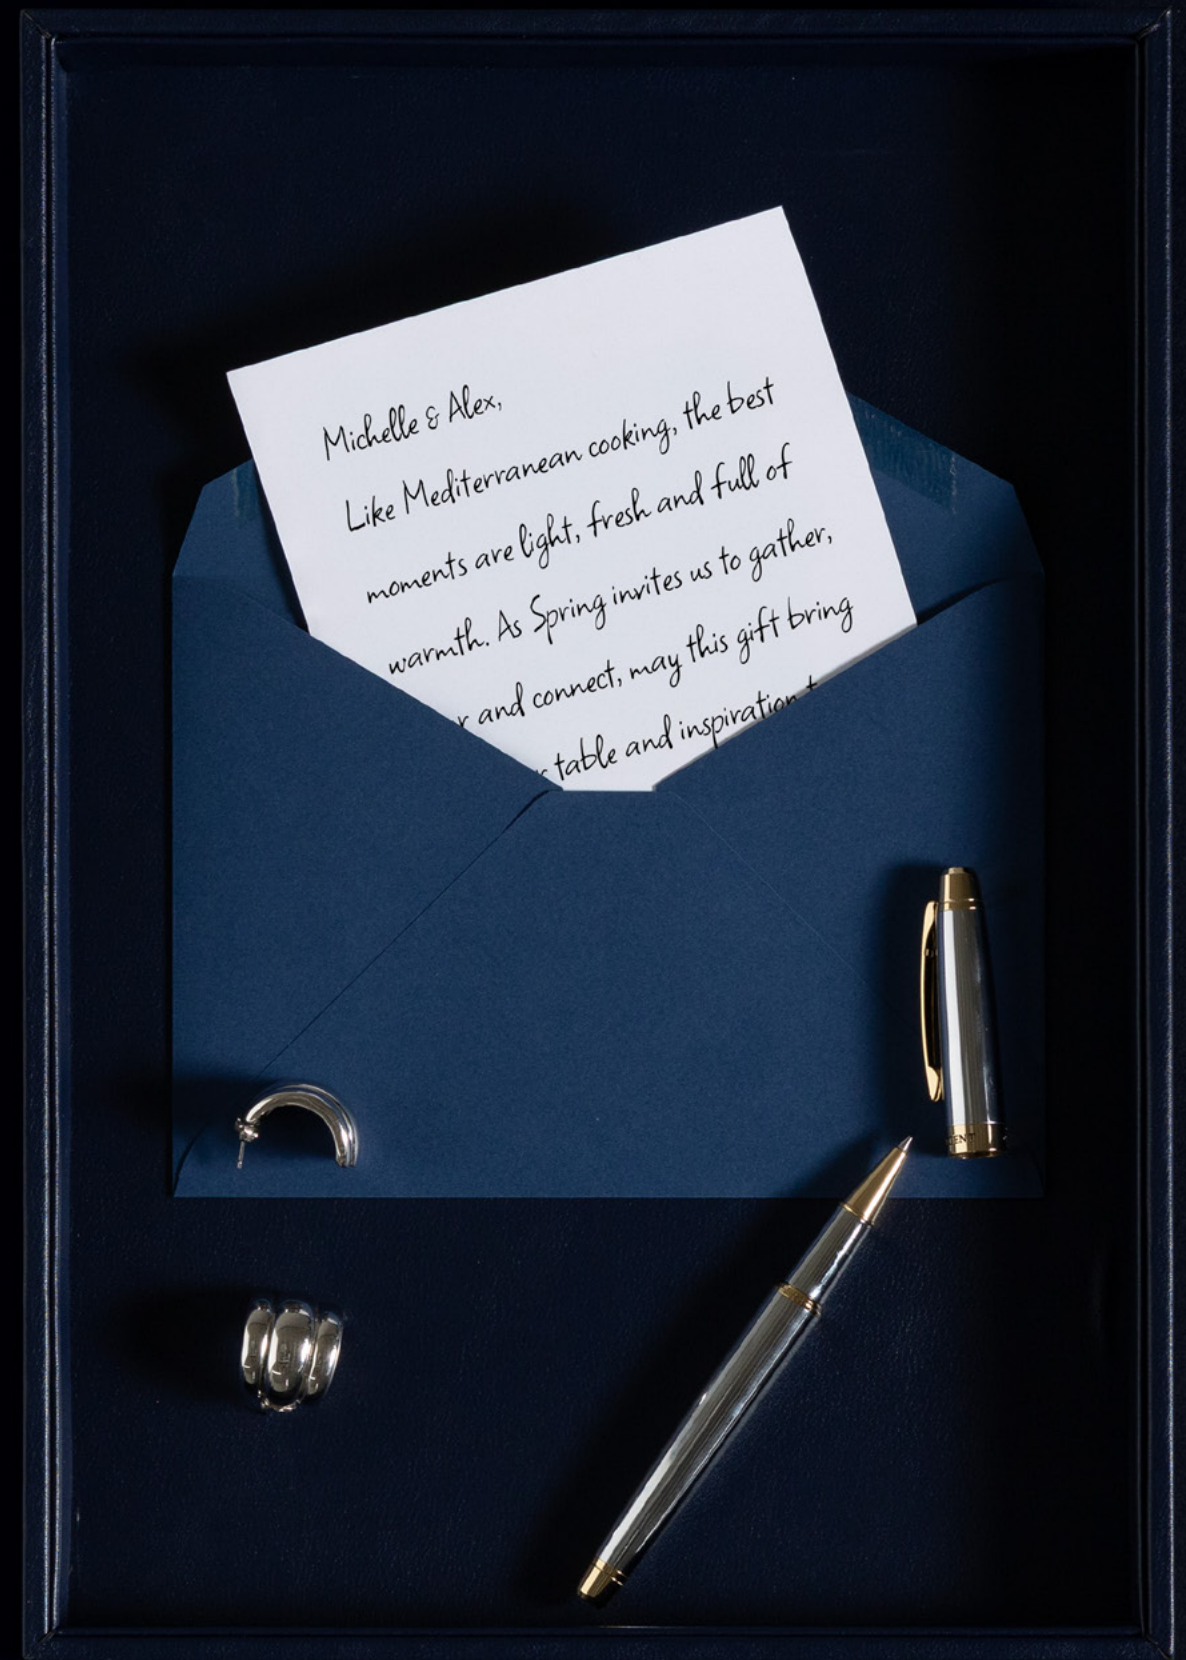 Michelle & Alex,
Like Mediterranean cooking, the best
moments are light, fresh and full of
warmth. As Spring invites us to gather,
and connect, may this gift bring
table and inspiration